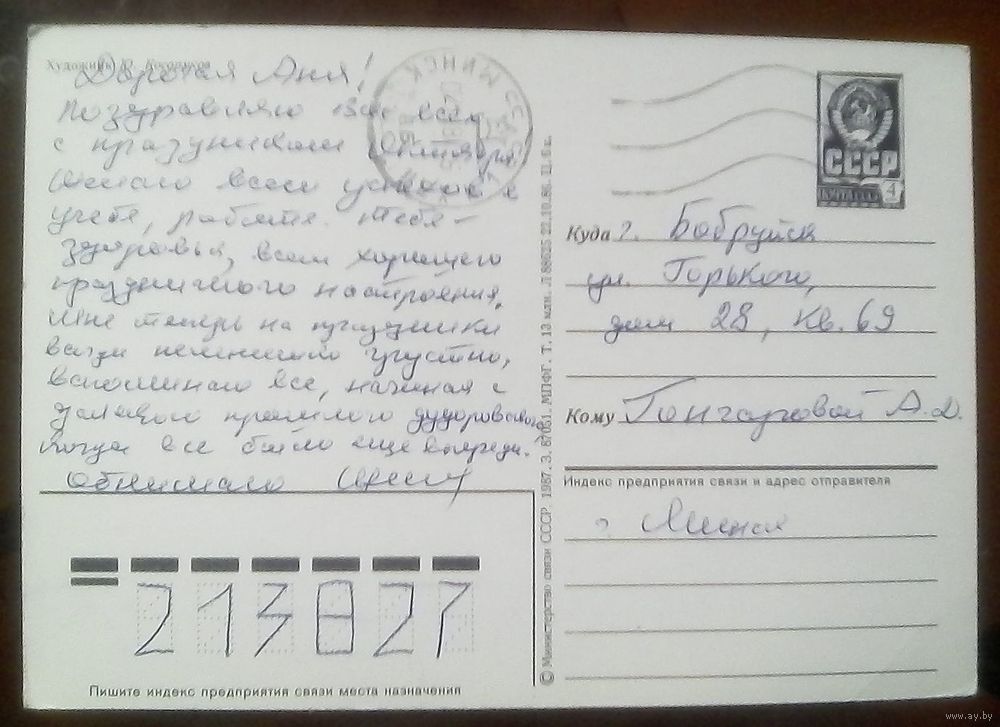 Художник
Дорогая Аня!
Поздравляю Вас всех
с праздником Октября.
Желаю всем успехов в
учебе, работе. Тебе –
здоровья, всем хорошего
праздничного настроения.
Мне теперь на праздники
немножко грустно,
вспоминаю все, начиная с
далекого прошлого дудоровского,
когда все было еще впереди.
Обнимаю
МИНСК
СССР
ПОЧТА
4
Куда г. Бобруйск
ул. Горького,
дом 28, кв. 69
Кому Гончаровой А.Д.
Индекс предприятия связи и адрес отправителя
г. Минск
213827
Пишите индекс предприятия связи места назначения
© Министерство связи СССР. 1987. З. 87051. МПФГ. Т. 13 млн. Л 88625 22.10.86. Ц. 6 к.
www.ay.by